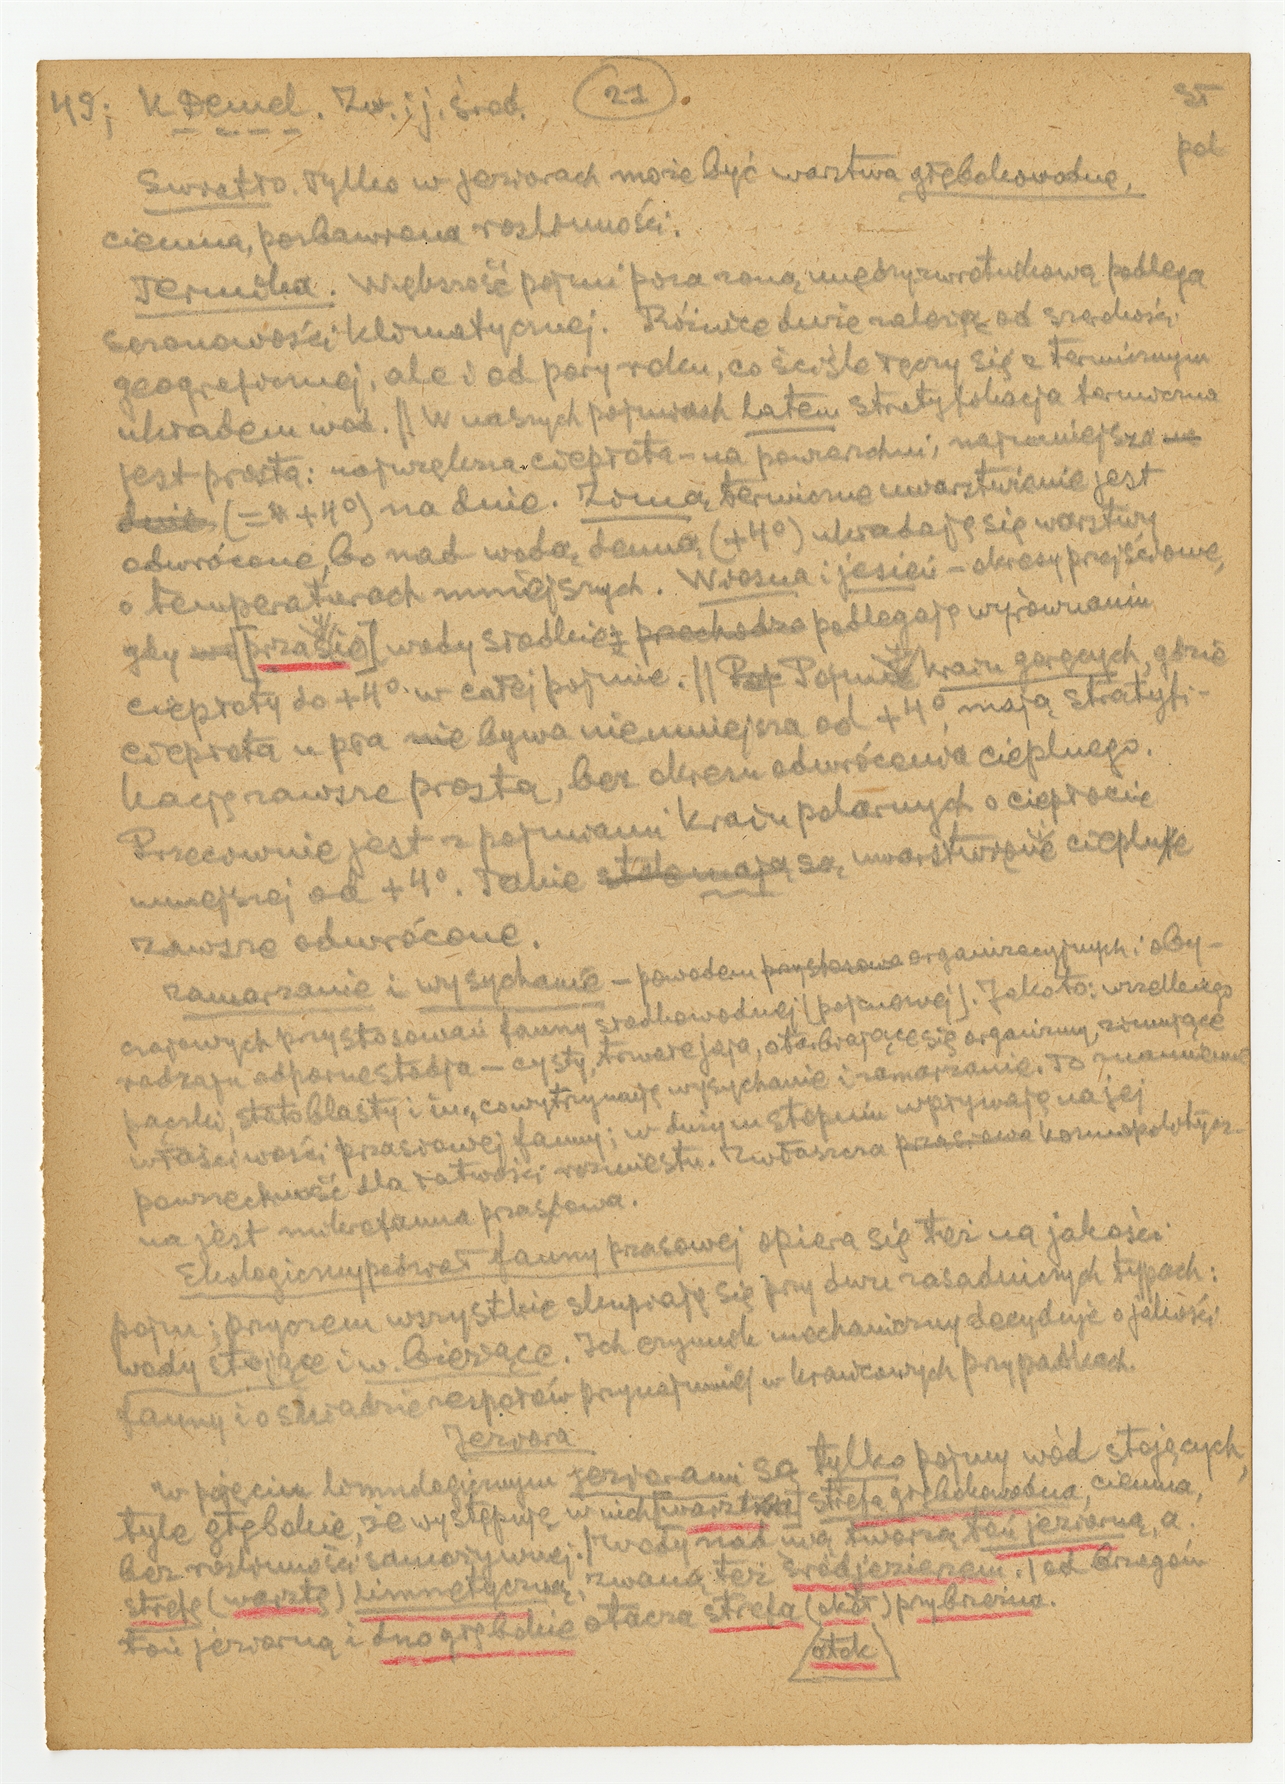 49; K Demel. Zw. i j. środ. 21 ST
pol
Światło. Tylko w jeziorach może być warstwa głębokowodna,
ciemna, pozbawiona roślinności.
Termika. Większość pojmi poza zoną międzyzwrotnikową podlega
sezonowości klimatycznej. Różnice duże zależą od szerokości
geograficznej, ale i od pory roku, co ściśle łączy się z termicznym
układem wód. // W naszych pojmiach latem stratyfikacja termiczna
jest prosta: największa ciepłota – na powierzchni, najmniejsza na
dnie (= +4°) na dnie. Zimą termiczne uwarstwienie jest
odwrócone, bo nad wodą denną (+4°) układają się warstwy
o temperaturach mniejszych. Wiosna i jesień – okresy przejściowe,
gdy [przasie] wody słodkie podlegają wyrównaniu
ciepłoty do +4° w całej pojmie. // Pojmie kraju gorących, gdzie
ciepłota u pła nie bywa niemniejsza od +4°, mają stratyfi-
kację zawsze prostą, bez okresu odwrócenia cieplnego.
Przeciwnie jest z pojmiami kraju polarnych o ciepłocie
mniejszej od +4°. Takie stale mają są uwarstwienie cieplne
zawsze odwrócone.
Zamarzanie i wysychanie – powodem przystosowa organizacyjnych i oby-
czajowych przystosowań fauny słodkowodnej [pojmowej]. Jako to: wszelkiego
rodzaju odporne stadja – cysty, trwałe jaja, otarbiające się organizmy, zimujące
pączki, statoblasty i in., co wytrzymają wysychanie i zamarzanie. To znamienne
właściwości przasiowej fauny; w dużym stopniu wpływają na jej
powszechność dla łatwości rozmiestu. Zwłaszcza przasiowa kosmopolitycz-
na jest mikrofauna przasiowa.
Ekologiczny podział fauny przasowej opiera się też na jakości
pojm; przyczem wszystkie skupiają się przy dwu zasadniczych typach:
wody stojące i w. bieżące. Ich czynnik mechaniczny decyduje o jakości
fauny i o składzie zespołów przynajmniej w krańcowych przypadkach.
Jeziora
W pojęciu limnologicznym jeziorami są tylko pojmy wód stojących,
tyle głębokie, że występuje w nich [warstwa] strefa głębokowodna, ciemna,
bez roślinności samożywnej. / Wody nad nią tworzą toń jeziorną, a.
strefę (warstę) limnetyczną, zwaną też śródjezierzem. / od brzegów
toń jeziorną i dno głębokie otacza strefa (okół) przybrzeżna.
otok